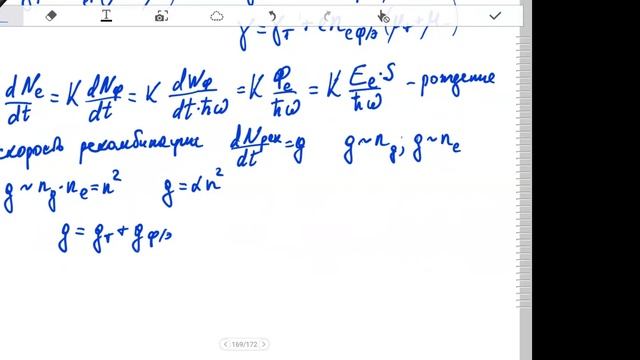 γ = γ_т + en_{eф/э}(μ_+ + μ_-)
dN_e/dt = K dN_ф/dt = K dW_ф/(dt·ħω) = K Φ_e/ħω = K E_e·S/ħω – рождение
скорость рекомбинации dN_рек/dt = g g ~ n_g; g ~ n_e
g ~ n_g·n_e = n² g = αn²
g = g_т + g_ф/э
169/172